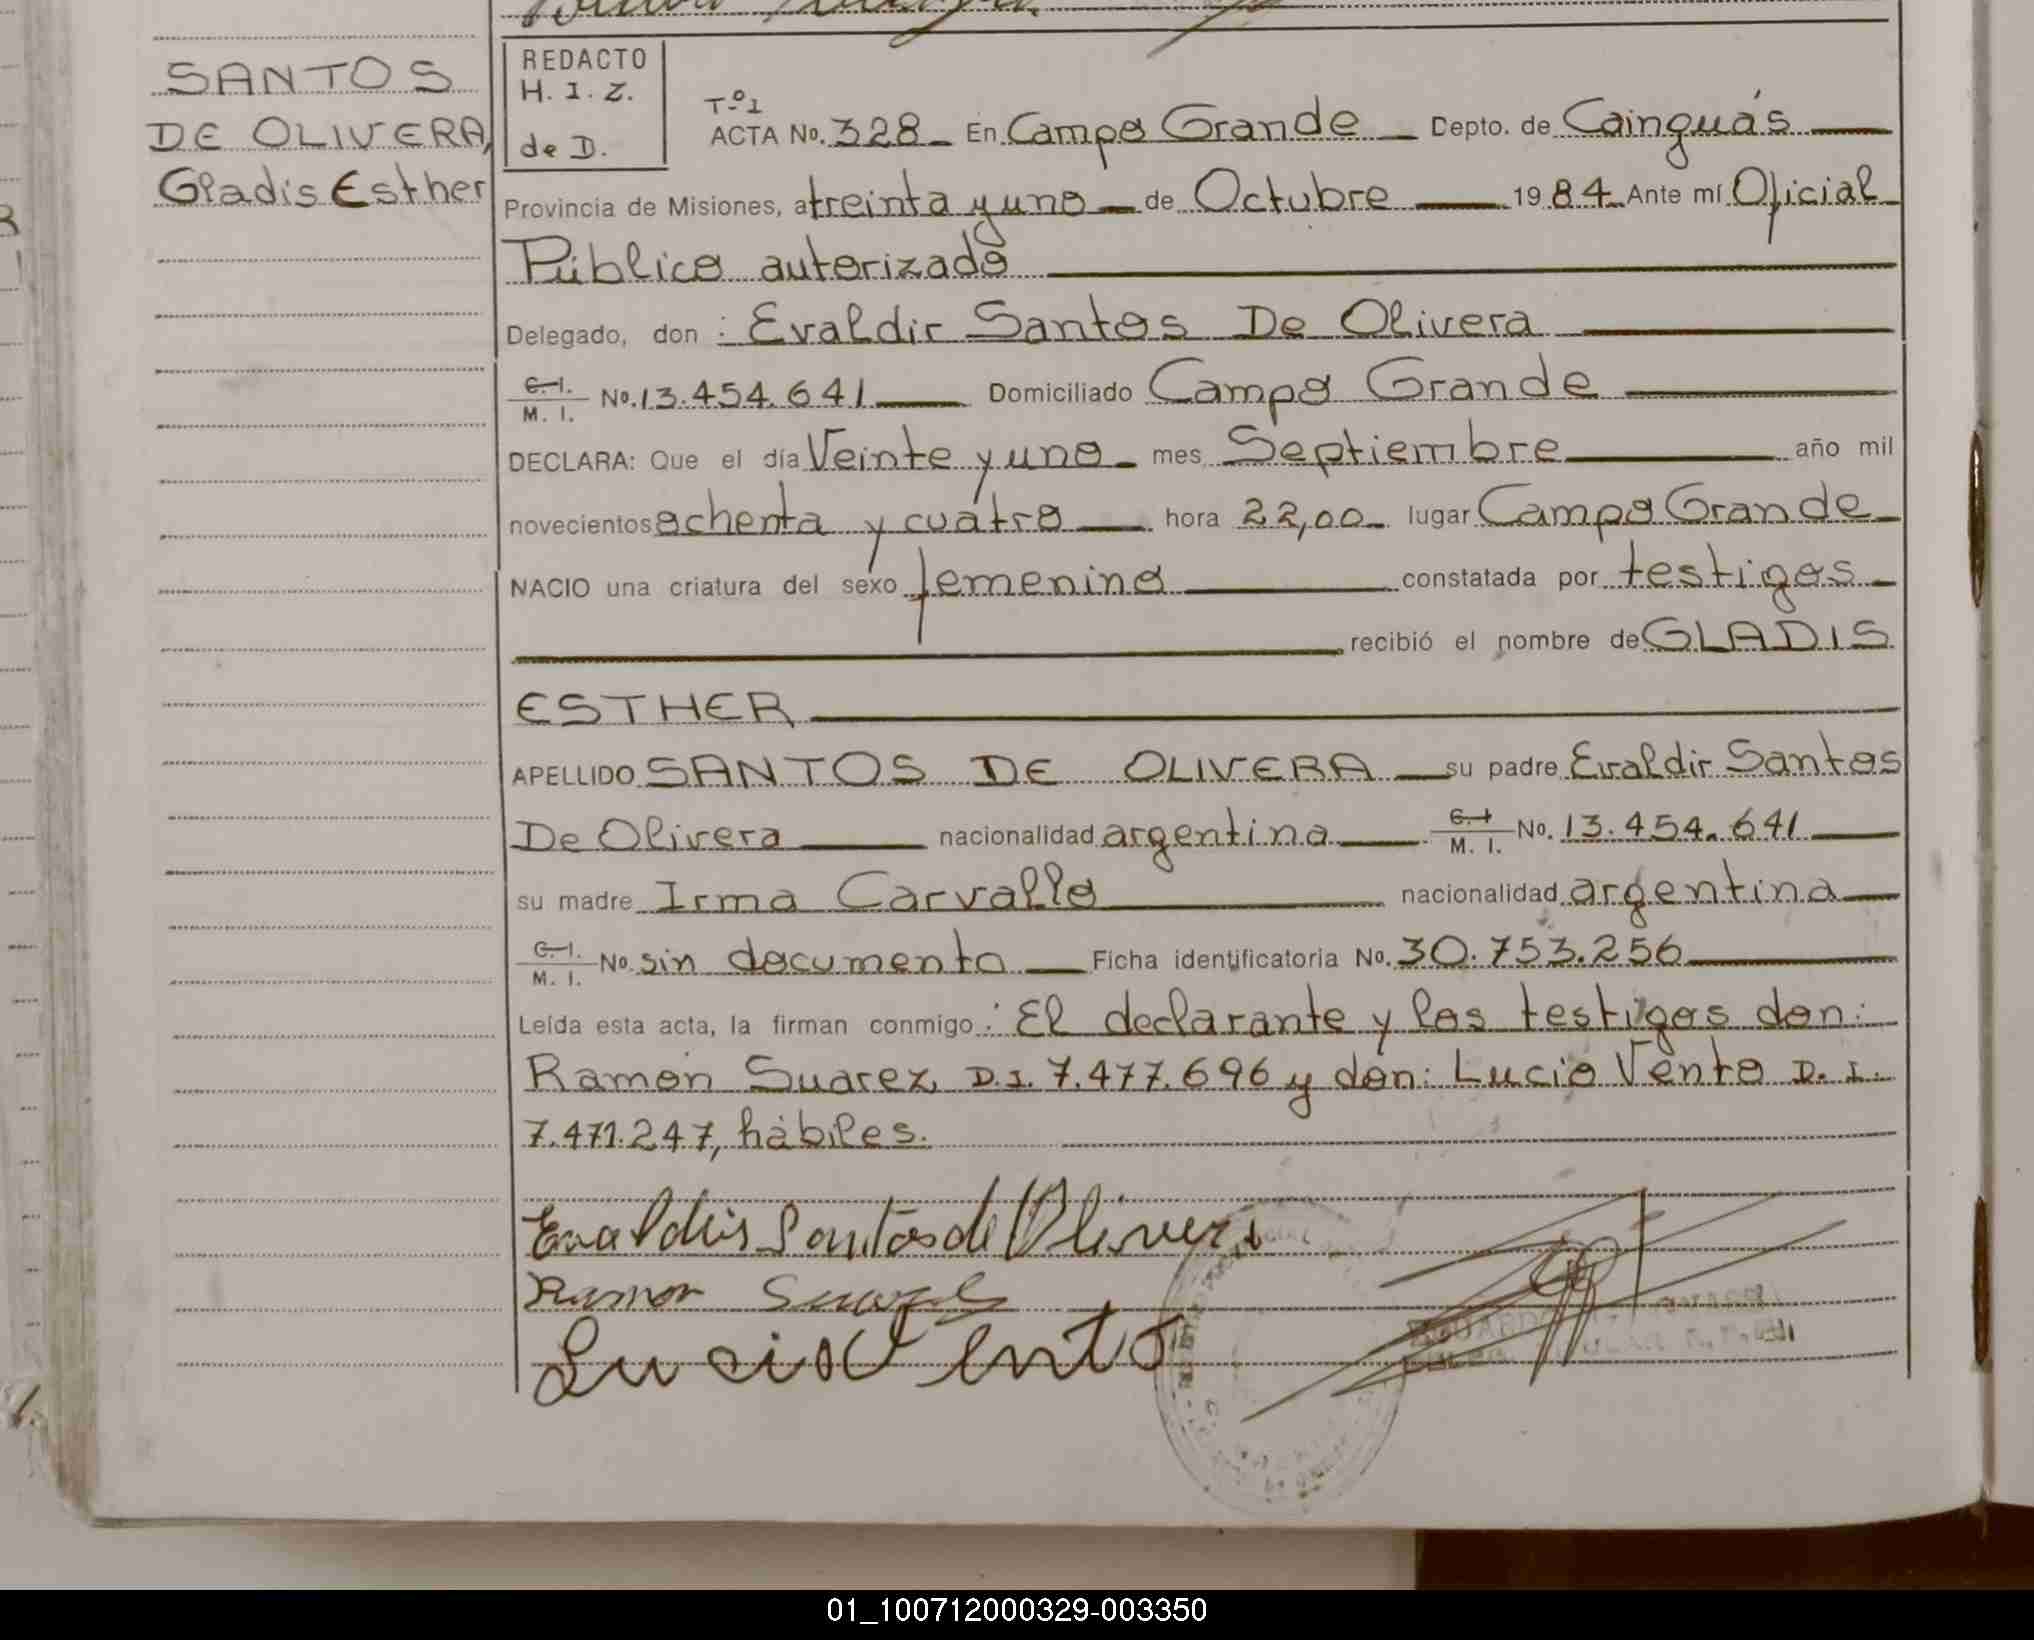 SANTOS
DE OLIVERA,
Gladis Esther
REDACTO
H. I. Z.
de D.
T-º1
ACTA No. 328 En Campo Grande Depto. de Cainguás
Provincia de Misiones, a treinta y uno de Octubre 1984 Ante mí Oficial
Público autorizado
Delegado, don : Evaldir Santos De Olivera
C. I. M. I. No. 13.454.641 Domiciliado Campo Grande
DECLARA: Que el día Veinte y uno mes Septiembre año mil
novecientos ochenta y cuatro hora 22,00 lugar Campo Grande
NACIO una criatura del sexo femenino constatada por testigos
recibió el nombre de GLADIS
ESTHER
APELLIDO SANTOS DE OLIVERA su padre Evaldir Santos
De Olivera nacionalidad argentina C. I. M. I. No. 13.454.641
su madre Irma Carvallo nacionalidad argentina
C. I. M. I. No. sin documento Ficha identificatoria No. 30.753.256
Leída esta acta, la firman conmigo : El declarante y los testigos don:
Ramón Suarez D.I. 7.477.696 y don: Lucio Vento D. I.
7.471.247, hábiles.
Evaldir Santos de Olivera
Ramon Suarez
Lucio Vento
01_100712000329-003350